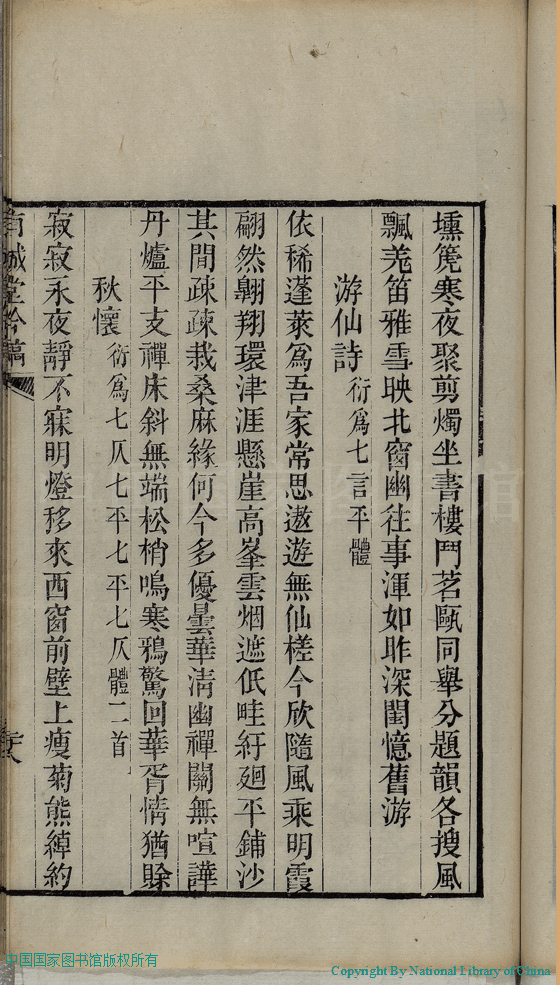 壎箎寒夜聚剪燭坐書樓鬥茗甌同舉分題韻各搜風
飄羌笛雅雪映北窗幽往事渾如昨深閨憶舊游
游仙詩衍爲七言平體
依稀蓬萊爲吾家常思遨遊無仙槎今欣隨風乘明霞
翩然翺翔環津涯懸崖高峯雲烟遮低畦紆廻平鋪沙
其間疎疎栽桑麻緣何今多優曇華清幽禪關無喧譁
丹爐平支禪床斜無端松梢鳴寒鴉驚回華胥情猶賖
秋懷衍爲七仄七平七平七仄體二首
寂寂永夜靜不寐明燈移來西窗前壁上瘦菊態綽約
堂吟稿
中国国家图书馆版权所有
Copyright By National Library of China